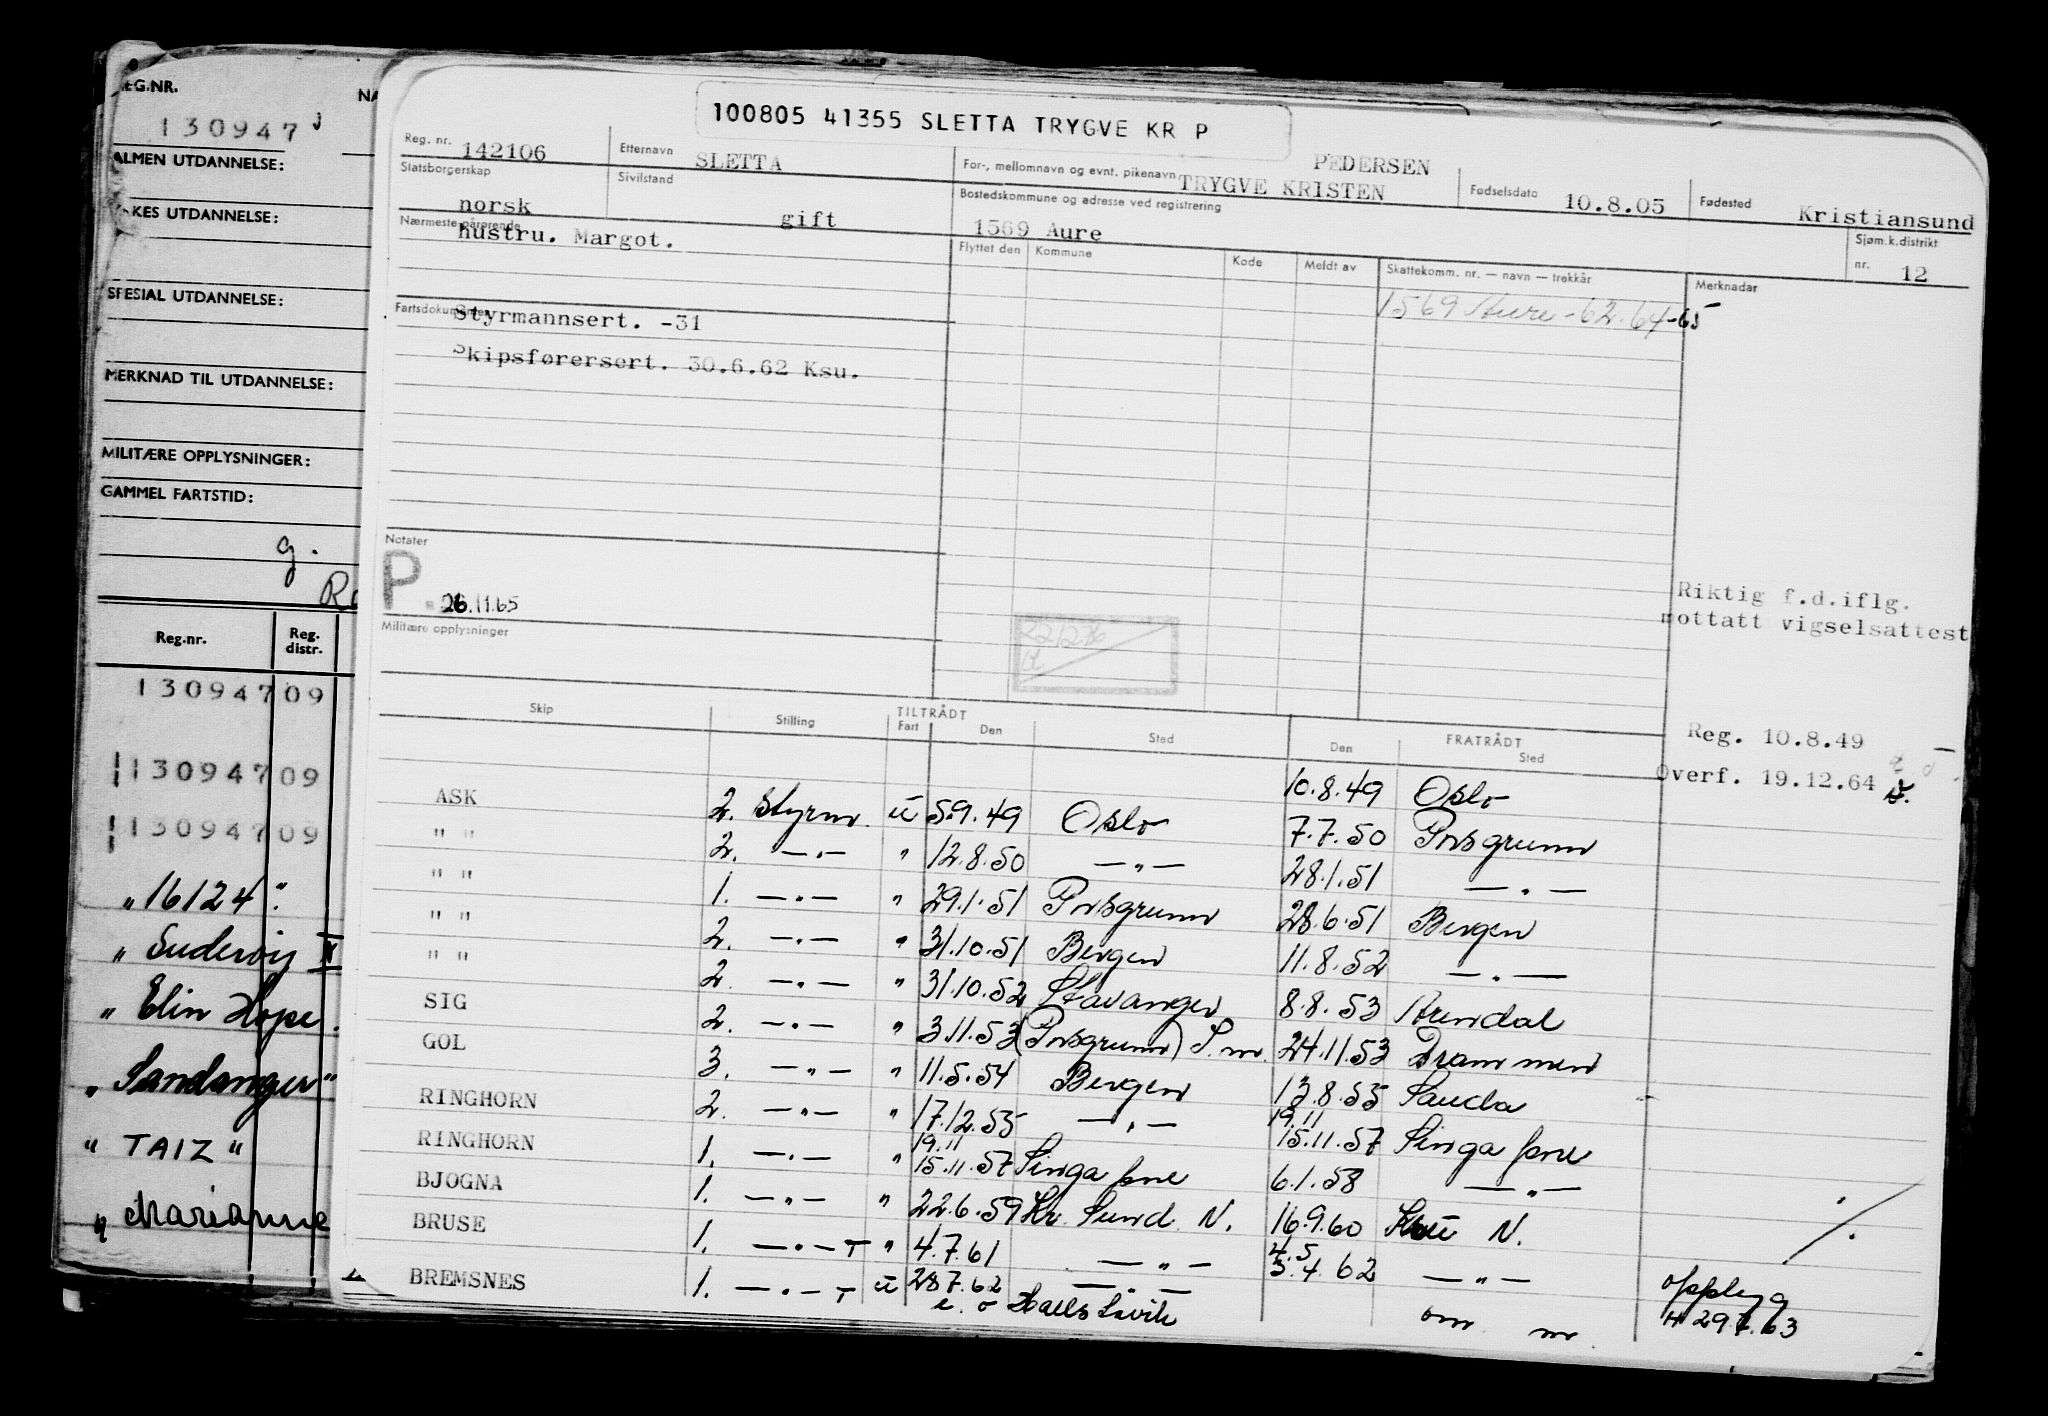 REG.NR.
NA
130947 j
ALMEN UTDANNELSE:
YRKES UTDANNELSE:
SPESIAL UTDANNELSE:
MERKNAD TIL UTDANNELSE:
MILITÆRE OPPLYSNINGER:
GAMMEL FARTSTID:
g.
Reg.nr. Reg. distr.
130947 09
130947 09
130947 09
"16124"
" Suderøy II
" Elin Hope.
" Sandanger"
" TAIZ"
" Marianne
100805 41355 SLETTA TRYGVE KR P
Reg. nr. 142106 Etternavn SLETTA For-, mellomnavn og evnt. pikenavn PEDERSEN TRYGVE KRISTEN Fødselsdato 10.8.05 Fødested Kristiansund
Statsborgerskap norsk Sivilstand gift Bostedskommune og adresse ved registrering 1569 Aure Sjøm.k.distrikt nr. 12
Nærmeste pårørende hustru. Margot.
Flyttet den Kommune Kode Meldt av Skattekomm. nr. — navn — trekkår Merknadar
1569 Aure - 62. 64-65
Fartsdokumenter Styrmannsert. -31
Skipsførersert. 30.6.62 Ksu.
Notater
P 26.11.65
Militære opplysninger
Riktig f.d.iflg.
mottatt vigselsattest
Reg. 10.8.49
Overf. 19.12.64
Skip Stilling TILTRÅDT Fart Den Sted FRATRÅDT Den Sted
10.8.49 Oslo
ASK 2. Styrm. u 5.9.49 Oslo 7.7.50 Porsgrunn
" " 2. —"— " 12.8.50 —"— 28.1.51 —"—
" " 1. —"— " 29.1.51 Porsgrunn 28.6.51 Bergen
" " 2. —"— " 31.10.51 Bergen 11.8.52 —"—
" " 2. —"— " 31.10.52 Stavanger 8.8.53 Arendal
SIG 2. —"— " 3.11.53 (Porsgrunn) S.m. 24.11.53 Drammen
GOL 3. —"— " 11.5.54 Bergen 13.8.55 Sauda
RINGHORN 2. —"— " 17.12.55 —"— 19.11 15.11.57 Singapore
RINGHORN 1. —"— " 19.11 15.11.57 Singapore 6.1.58 —"—
BJOGNA 1. —"— " 22.6.59 Kr. Sund N. 16.9.60 Ksu N.
BRUSE 1. —"— T " 4.7.61 —"— 4.5 3.4.62 —"—
BREMSNES 1. —"— T u 28.7.62 —"—
om mv
opplyg
H 29.7.63